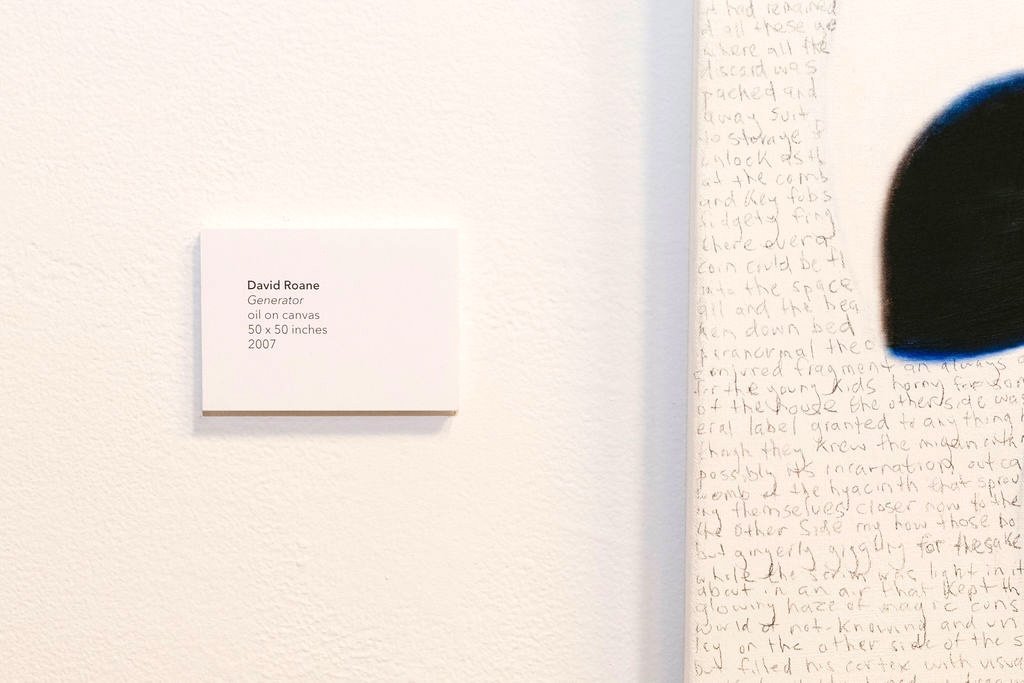 David Roane
Generator
oil on canvas
50 x 50 inches
2007
it had remained
all these
where all the
discard was
and
away suit
to storage
unlock as
at the comb
and key fobs
fidgety fing
there over a
coin could be
into the space
all and the
down bed
paranormal the
conjured fragment an always
for the young kids horny for
of the house the other side was
eral label granted to anything
though they knew the
possibly its incarnation out
womb of the hyacinth that
ing themselves closer now to the
the other side my how those
but gingerly for the sake
while the scrim was light in
about in an air that kept
glowing haze of magic
world of not-knowing and un
on the other side of the
but filled his cortex with